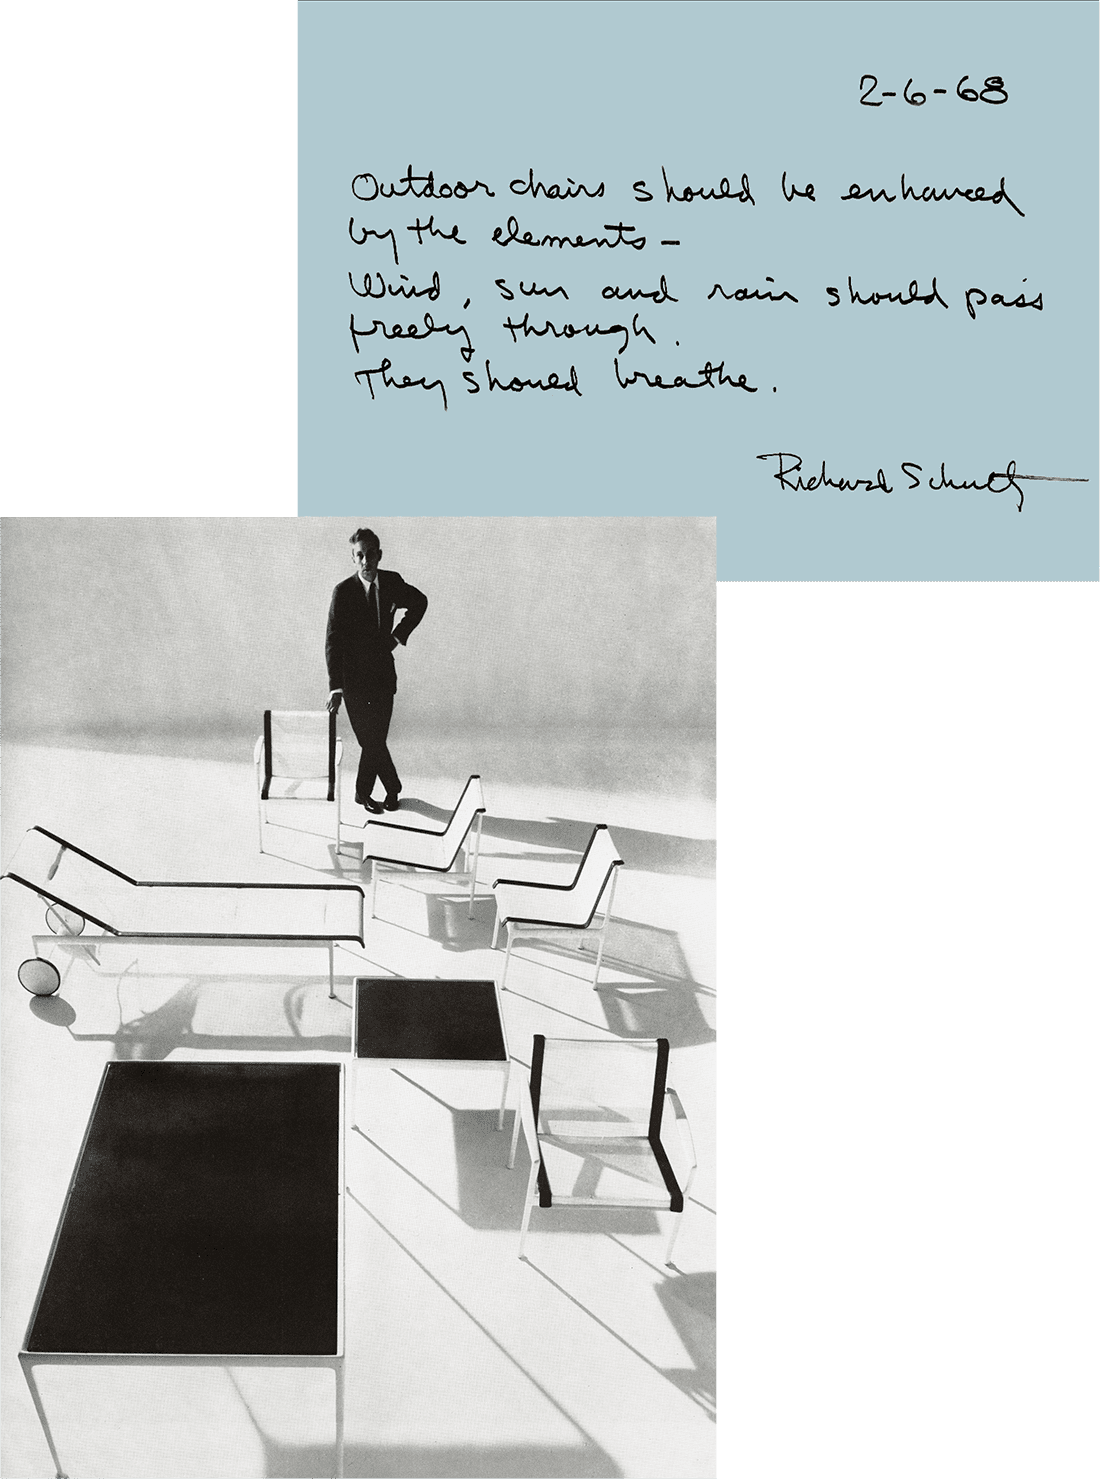 2-6-68
Outdoor chairs should be enhanced
by the elements –
Wind, sun and rain should pass
freely through.
They should breathe.
Richard Schultz